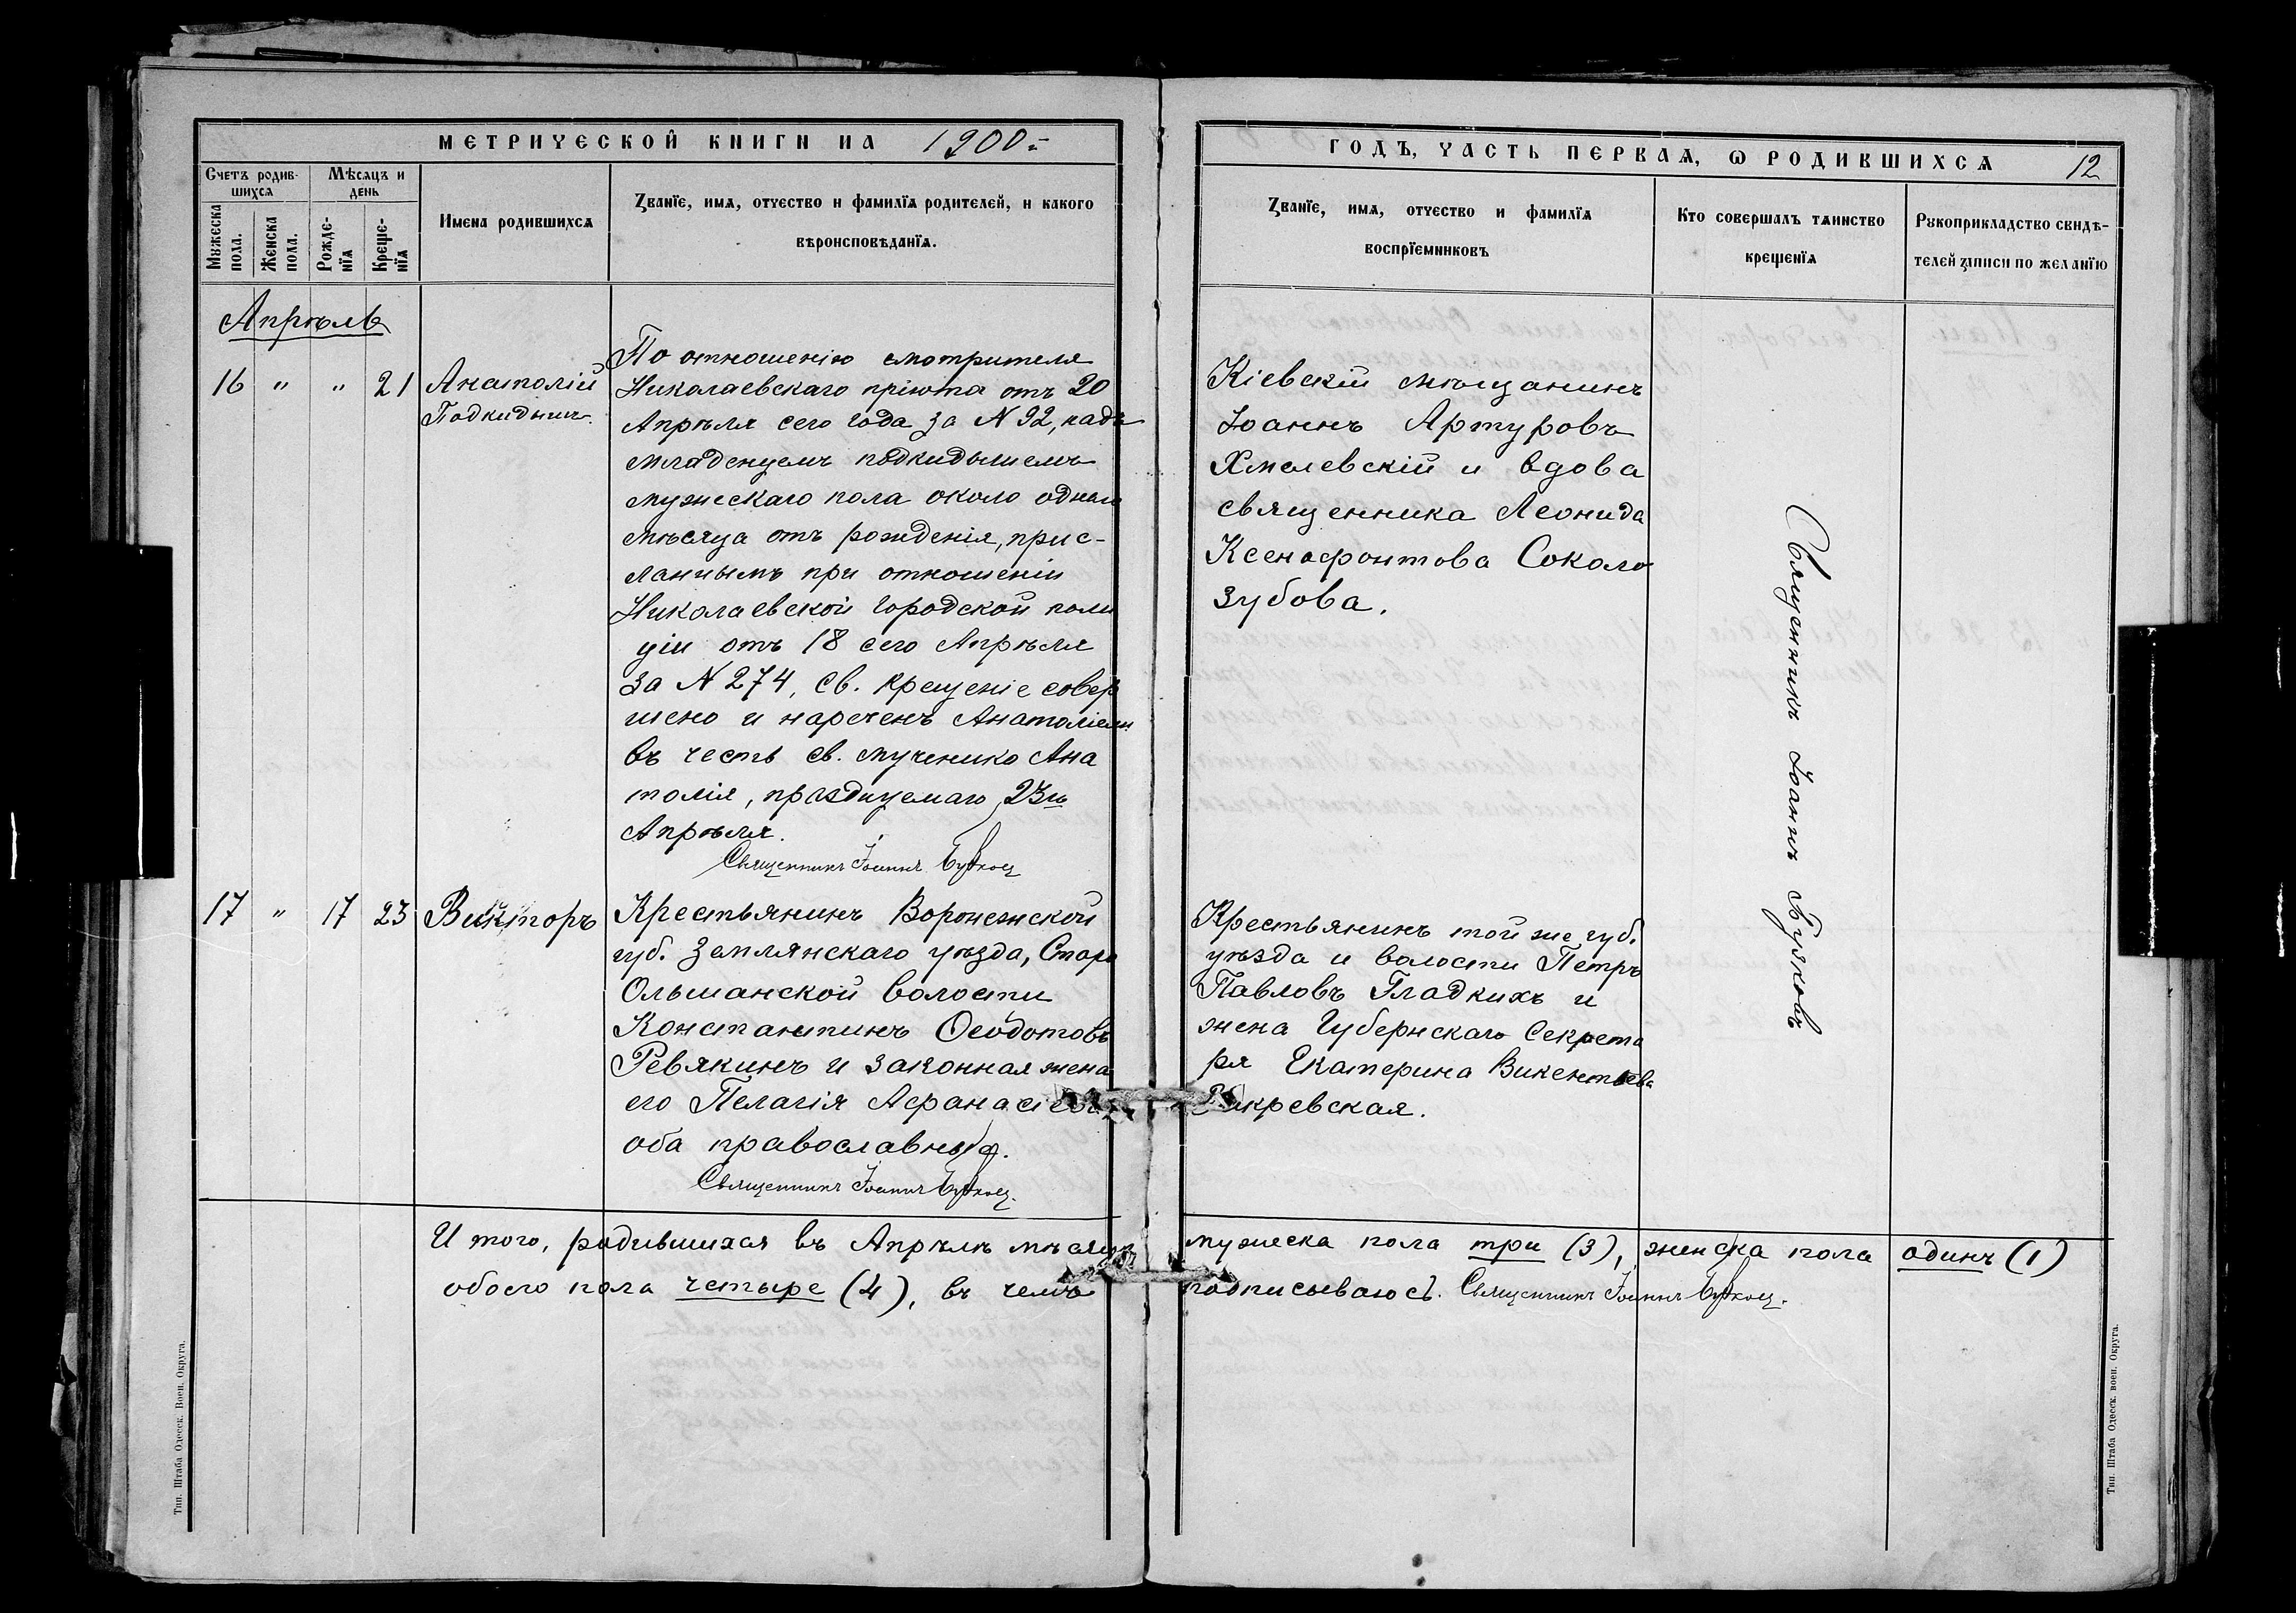 МЕТРИЧЕСКОЙ КНИГИ НА 1900.
Счетъ родив-
шихся
Мѣсяцъ и
день
Мужеска
пола.
Женска
пола.
Рожде-
нїя
Креще-
нїя
Имена родившихся
Званїе, имя, отчество и фамилїя родителей, и какого
вѣроисповѣданїя.
Апрѣль
16 " " 21
Анатолій
Подкидышъ.
По отношенію смотрителя
Николаевскаго пріюта отъ 20
Апрѣля сего года за N 92, надъ
младенцемъ подкидышемъ
мужескаго пола около одного
мѣсяца отъ рожденія, прис-
ланнымъ при отношеніи
Николаевской городской поли
ціи отъ 18 сего Апрѣля
за N 274, св. крещеніе совер
шено и нареченъ Анатоліемъ
въ честь св. мученико Ана
толія, празднуемаго 23го
Апрѣля.
Священникъ Іоаннъ
17 " 17 23
Викторъ
Крестьянинъ Воронежской
губ. Землянскаго уѣзда, Старо
Ольшанской волости
Константинъ Ѳеодотовъ
Ревякинъ и законная жена
его Пелагія Афанасіева
оба православныя.
Священникъ Іоаннъ
И того, родившихся въ Апрѣлѣ мѣсяцѣ
обоего пола четыре (4), въ чемъ
Тип. Штаба Одесск. Воен. Округа.
ГОДЪ, ЧАСТЬ ПЕРВАЯ, Ѡ РОДИВШИХСЯ 12
Званїе, имя, отчество и фамилїя
воспрїемниковъ
Кто совершалъ таинство
крещенїя
Рукоприкладство свидѣ-
телей записи по желанїю
Кіевскій мѣщанинъ
Іоаннъ Артуровъ
Хмелевскій и вдова
священника Леонида
Ксенофонтова Соколо
зубова.
Священникъ Іоаннъ Буяковъ
Крестьянинъ той же губ.
уѣзда и волости Петръ
Павловъ Гладкихъ и
жена Губернскаго Секрета
ря Екатерина Викентьева
мужеска пола три (3), женска пола одинъ (1)
подписываюсь. Священникъ Іоаннъ
Тип. Штаба Одесск. воен. Округа.